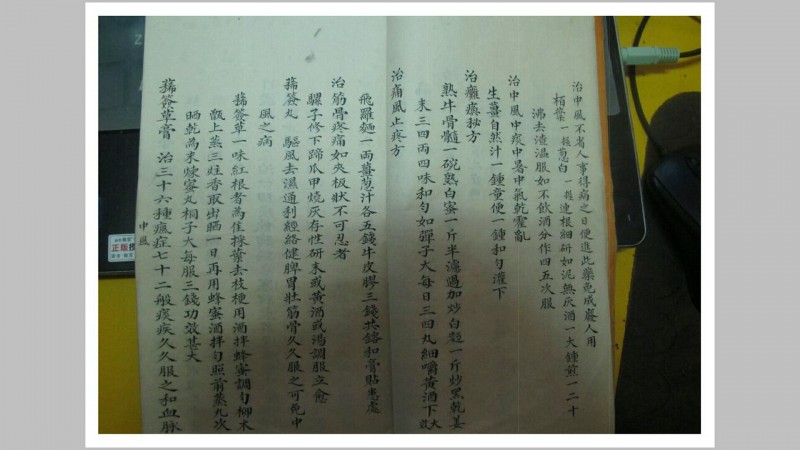 治中風不省人事得病之日便進此藥免成廢人用
柏葉一握葱白一握連根細研如泥無灰酒一大鍾煎一二十
沸去渣溫服如不飲酒分作四五次服
治中風中痰中暑中氣乾霍亂
生薑自然汁一鍾童便一鍾和勻灌下
治癱瘓秘方
熟牛骨髓一碗熟白蜜一斤半濾過加炒白麵一斤炒黑乾姜
末三四兩四味和勻如彈子大每日三四丸細嚼黃酒下大效
治痛風止疼方
飛羅麵一兩薑葱汁各五錢牛皮膠三錢共鎔和膏貼患處
治筋骨疼痛如夾板狀不可忍者
騾子修下蹄爪甲燒灰存性研末或黃酒或湯調服立愈
豨薟丸 驅風去濕通利經絡健脾胃壯筋骨久久服之可免中
風之病
豨薟草一味紅根者為佳採葉去枝梗用酒拌蜂蜜調勻柳木
甑上蒸三炷香取出晒一日再用蜂蜜酒拌勻照前蒸九次
晒乾為末煉蜜丸桐子大每服三錢功效甚大
豨薟草膏 治三十六種瘋症七十二般痰疾久久服之和血脉
中風
正版授